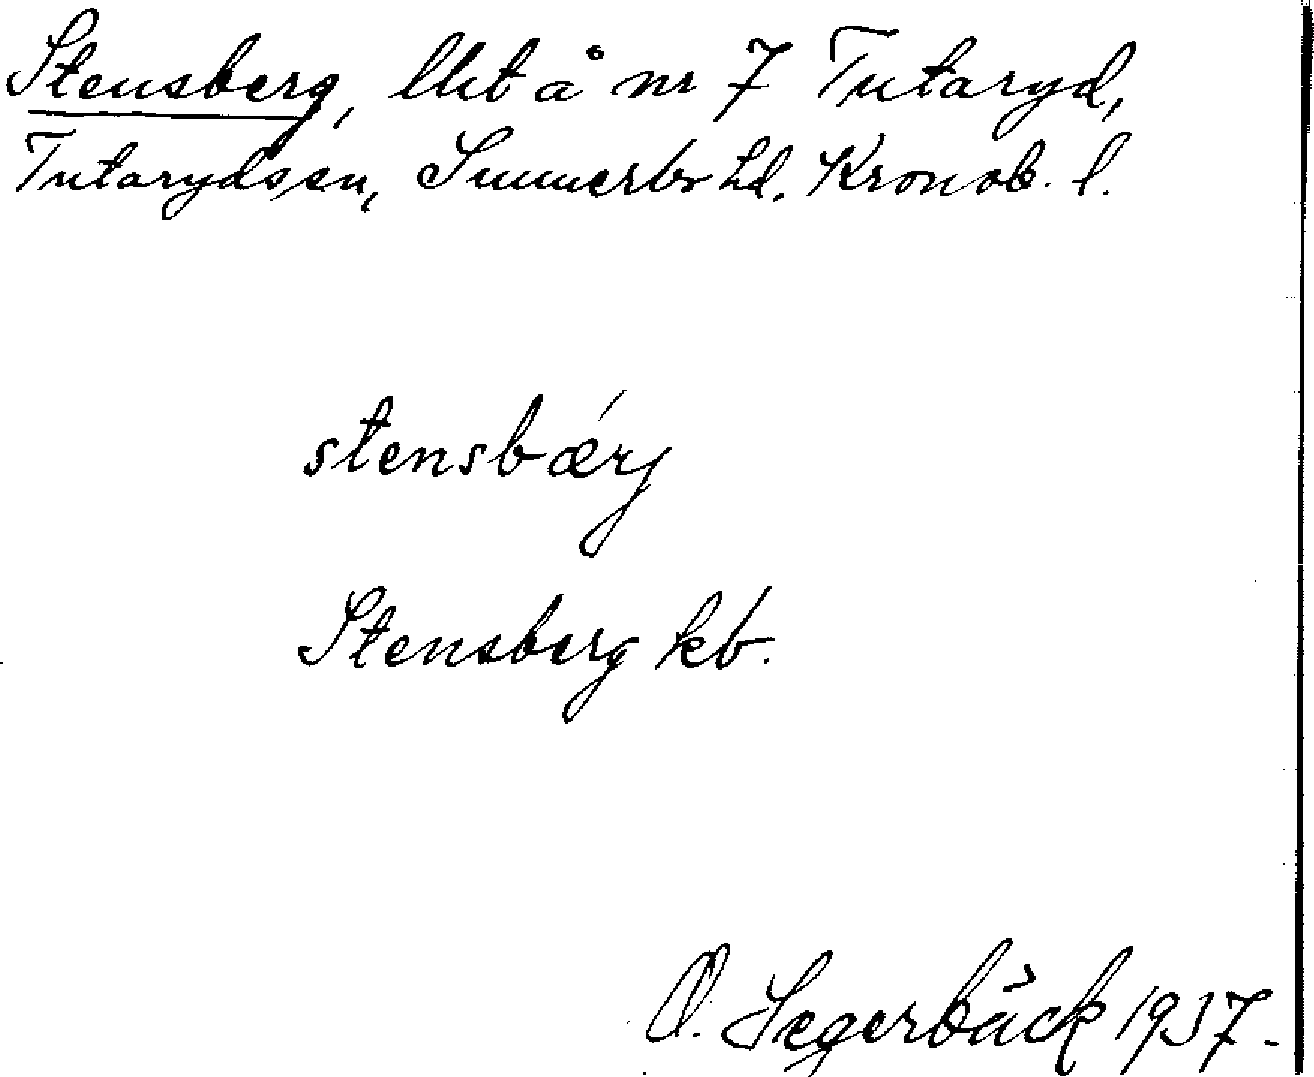 Stensberg, lht å nr 7 Tutaryd,
Tutaryds sn, Sunnerbo hd. Kronob. l.
stensbǽrj
Stensberg kb.
O. Segerbäck 1937.